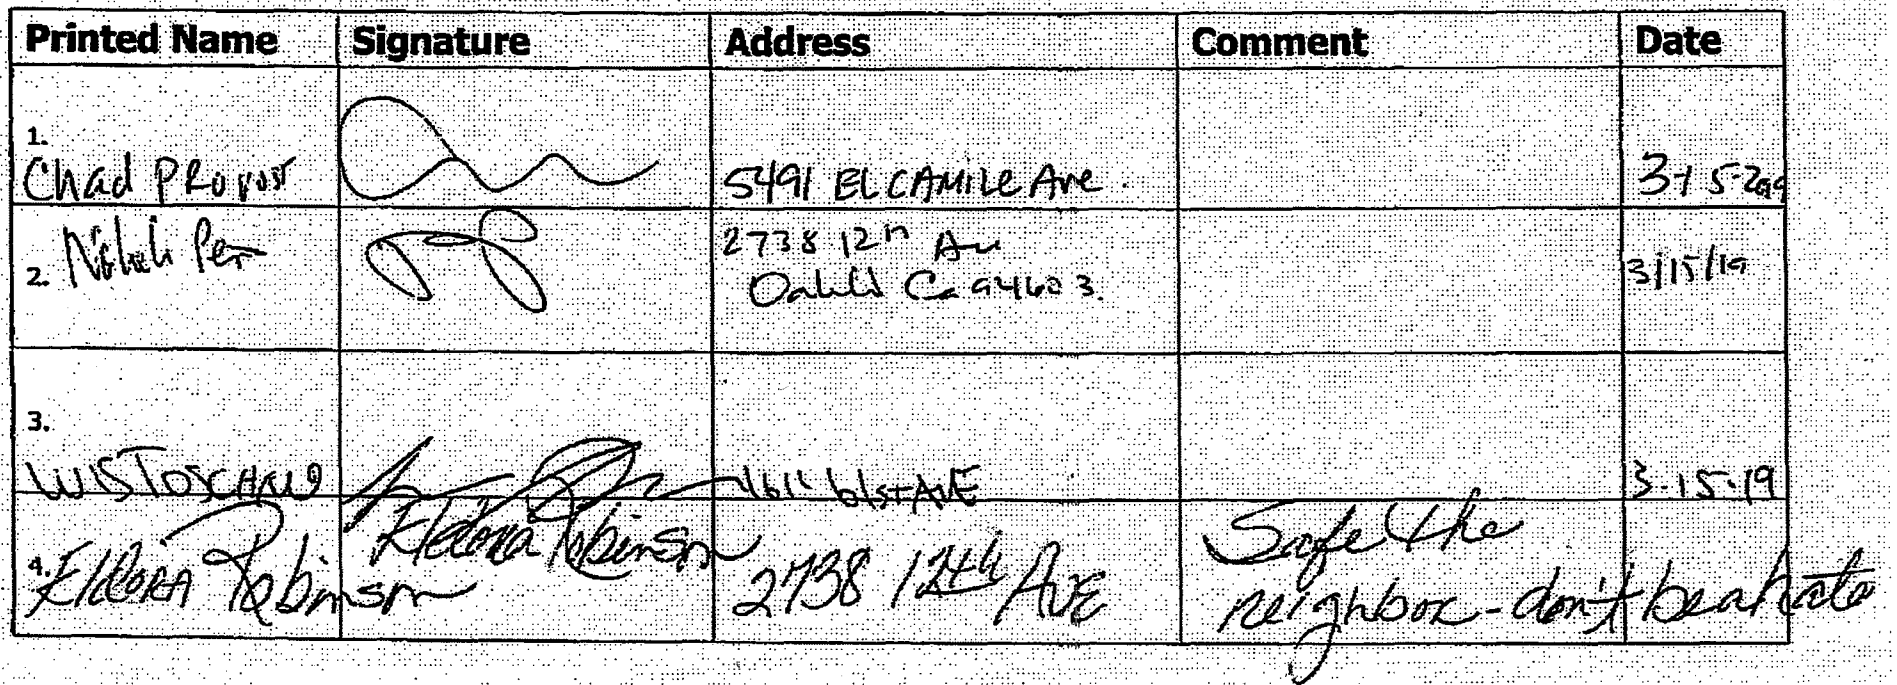 Printed Name Signature Address Comment Date
1.
Chad Provost 5491 EL CAMILE Ave. 3-15-2019
2. 2738 12th Av 3/15/19
Ca 94603
3.
1611 61st AVE 3-15-19
4. Eldora Robinson Eldora Robinson 2738 12th AVE Safe the
neighbor - don't be a hate